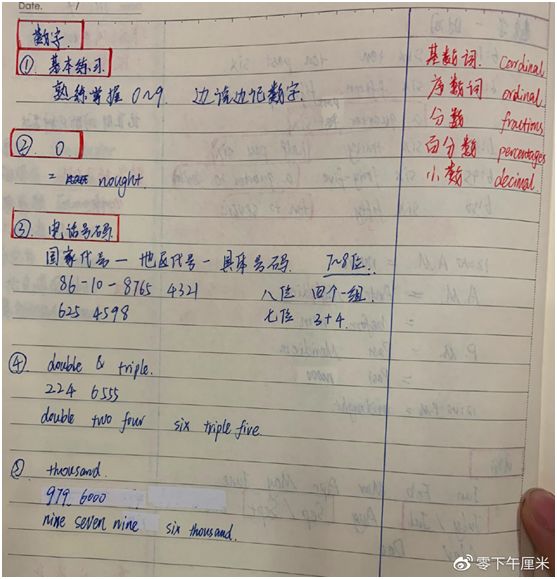 Date. /
数字
① 基本练习
熟练掌握 0~9. 边读边记数字.
② 0
= nought.
③ 电话号码
国家代号 — 地区代号 - 具体号码. 7~8位.
86-10-8765 4321 八位 四个一组.
625 4598 七位 3+4.
④ double & triple.
224 6555
double two four six triple five.
⑤ thousand.
979 6000
nine seven nine six thousand.
基数词. cardinal
序数词 ordinal
分数 fractions
百分数 percentages
小数 decimal
零下午厘米